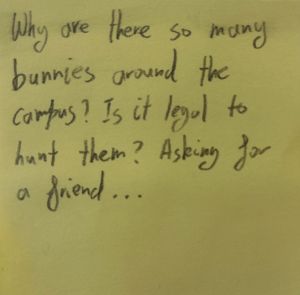 Why are there so many
bunnies around the
campus? Is it legal to
hunt them? Asking for
a friend...